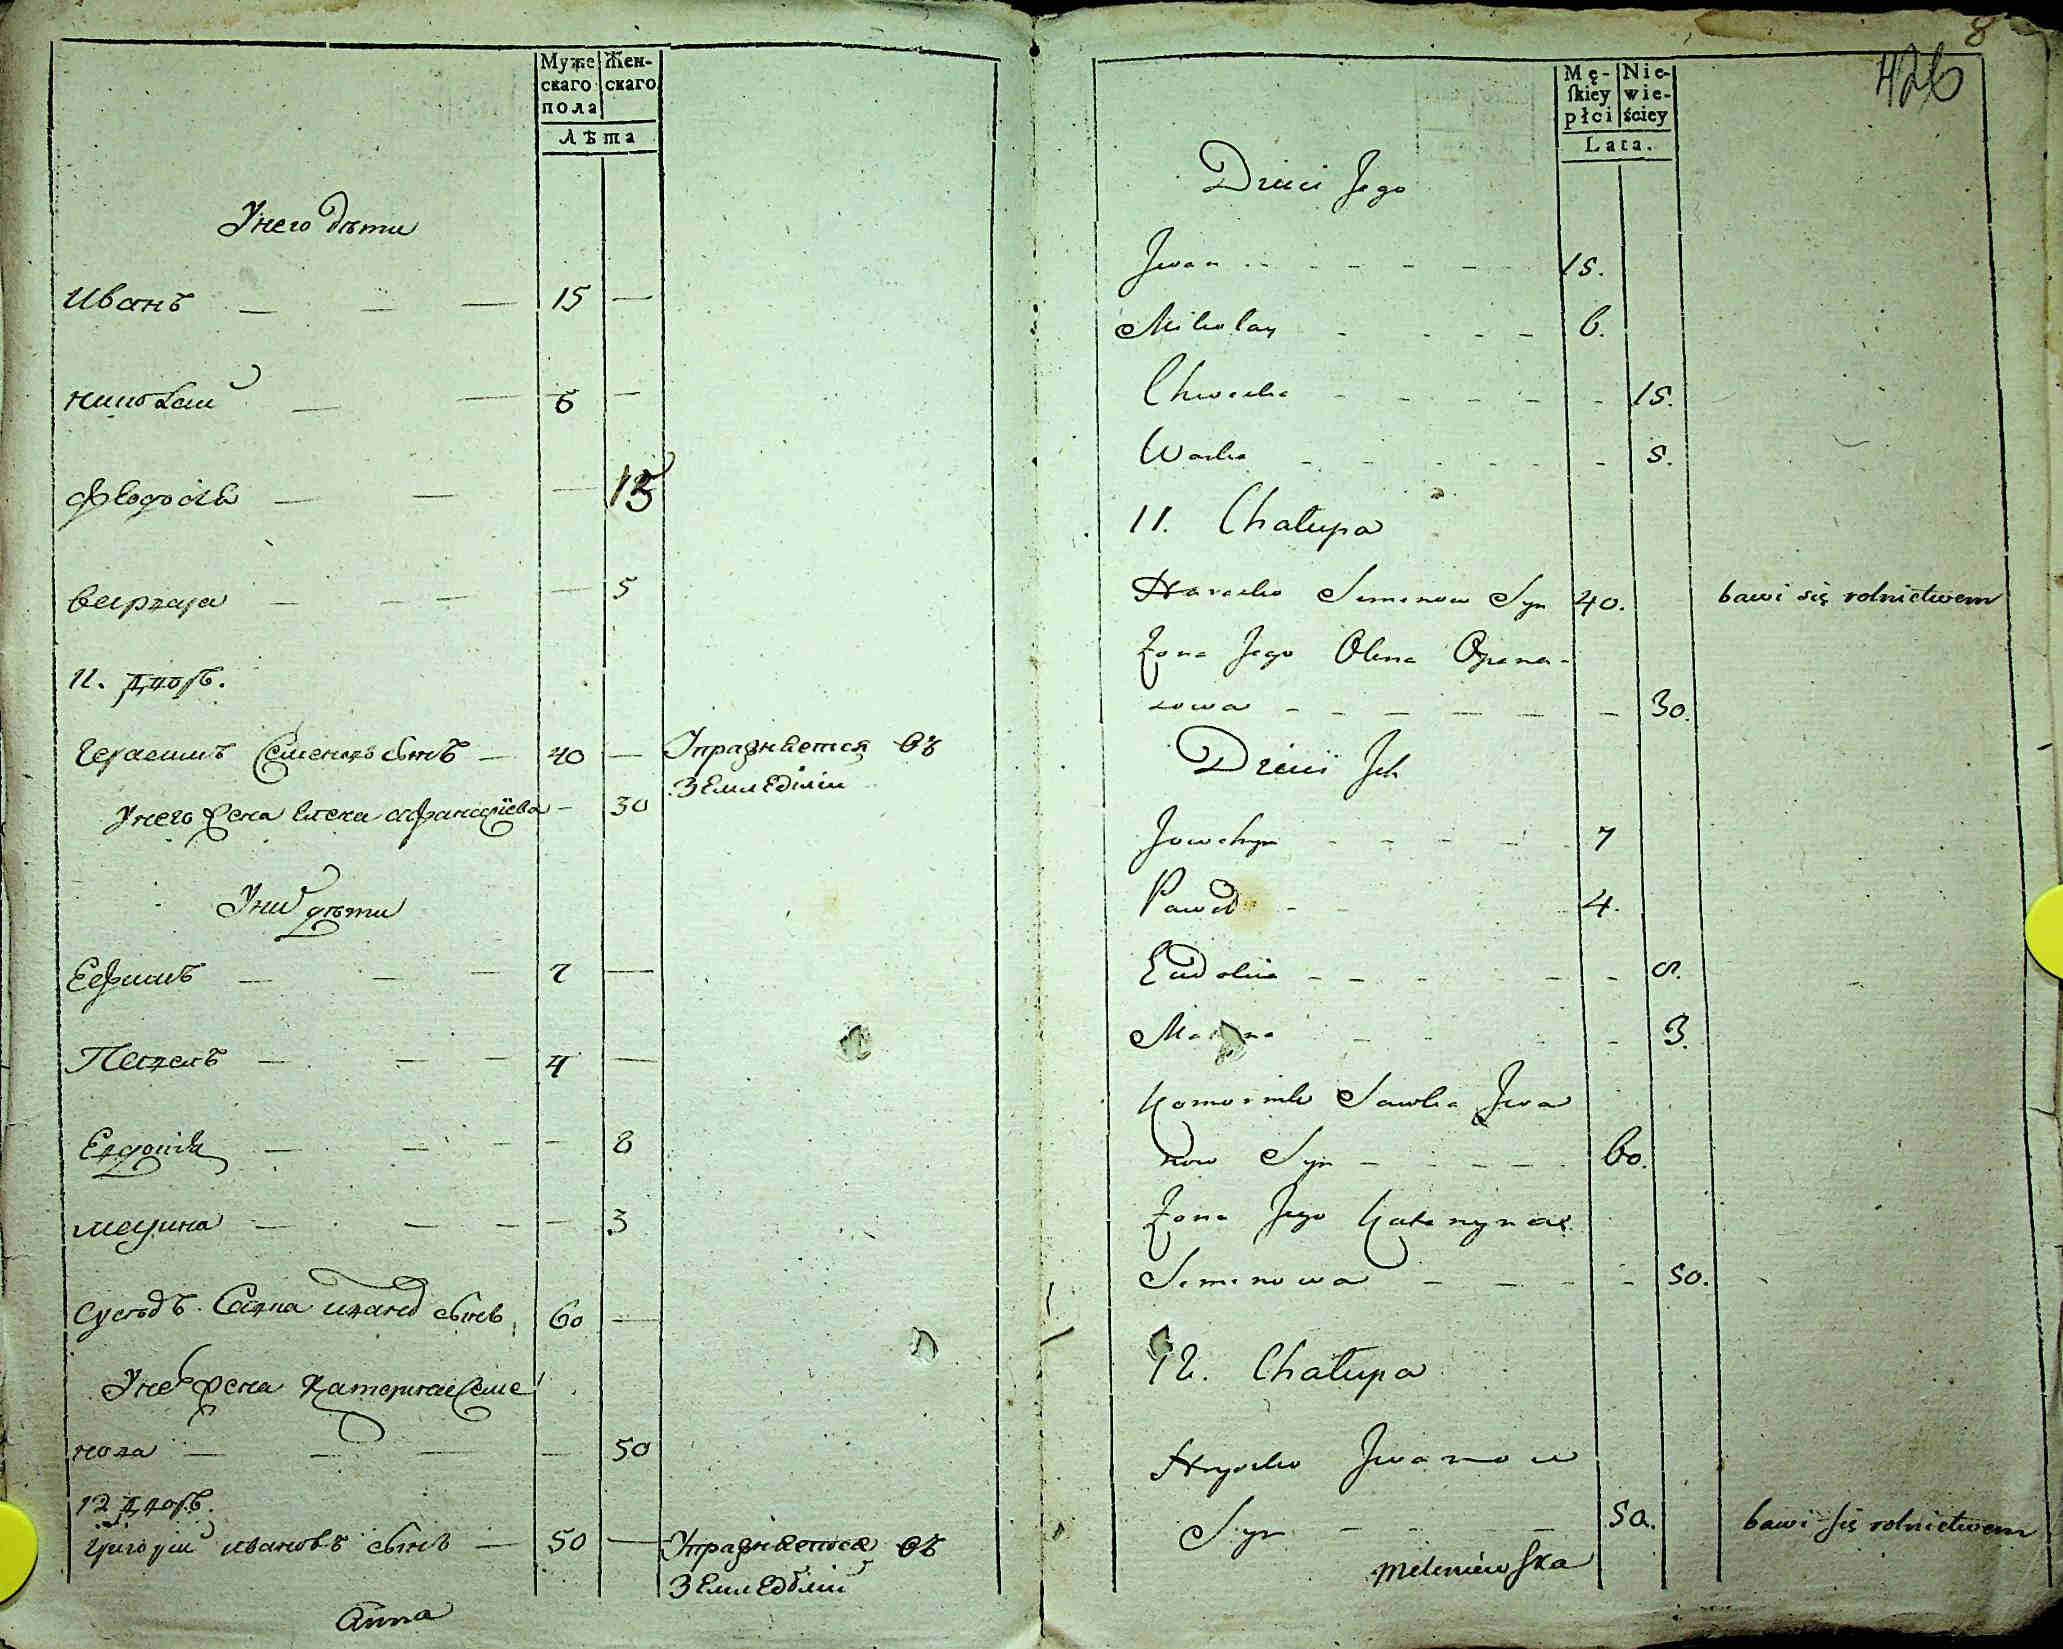 Муже
скаго
пола
Жен-
скаго
Лѣта
У него дѣти
Иванъ — — — 15 —
Николай — — 6 —
Феодосія — — — 15
Варвара — — — — 5
11. Дворъ.
Герасимъ Семеновъ сынъ — 40 — Упражняется въ
Земледѣліи
У него жена Елена Афанасіева — 30
У ни дѣти
Ефимъ — — — 7 —
Павелъ — — — 4 —
Евдокія — — — — 8
Марина — — — — 3
Сусѣдъ Савка Ивановъ сынъ 60 —
У него жена Катерина Семе
нова — — — — 50
12 Дворъ.
Григорій Ивановъ сынъ — 50 — Упражняется въ
Земледѣліи
Anna
8
426
Mę-
skiey
płci
Nie-
wie-
ściey
Lata.
Dzieci Jego
Jwan - - - - - 15.
Mikołay - - - - 6.
Chweska - - - - - 15.
Warka - - - - - - 5.
11. Chałupa
Harasko Semenow Syn 40. bawi się rolnictwem
Żona Jego Olena Opana-
sowa - - - - - - 30.
Dzieci Jch
Jowchym - - - - - 7
Paweł - - - 4.
Eudokia - - - - - - 8.
Ma na - - - - 3.
Komornik Sawka Jwa
now Syn - - - - - 60.
Żona Jego Katerynae
Semenowa - - - - - 50.
12. Chałupa
Hrycko Jwanow
Syn - - - - - 50. bawi się rolnictwem
Meleniewska